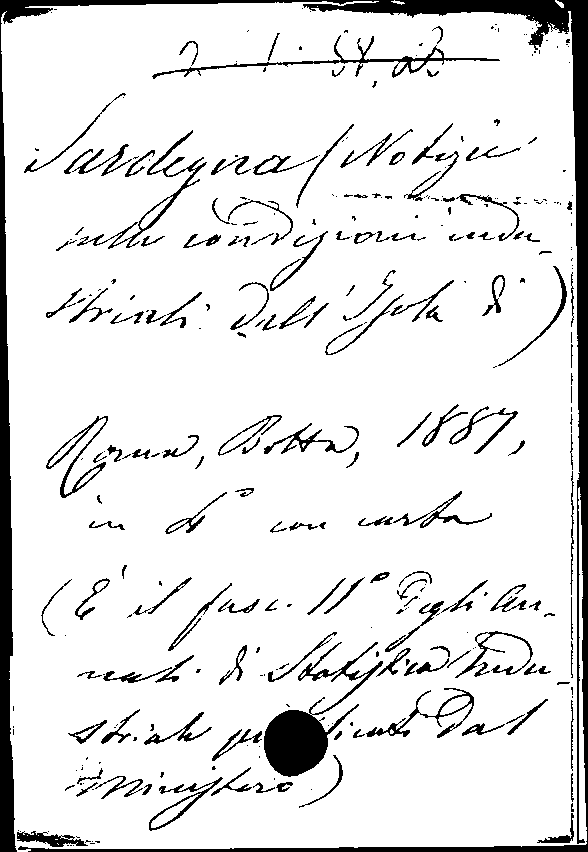 2 1. 58. a3
Sardegna (Notizie
sulle condizioni indu-
striali dell'Isola di)
Roma, Botta, 1887,
in 4° con carta
(È il fasc. 11° degli An-
nali di Statistica Indu-
striale pubblicati dal
Ministero)